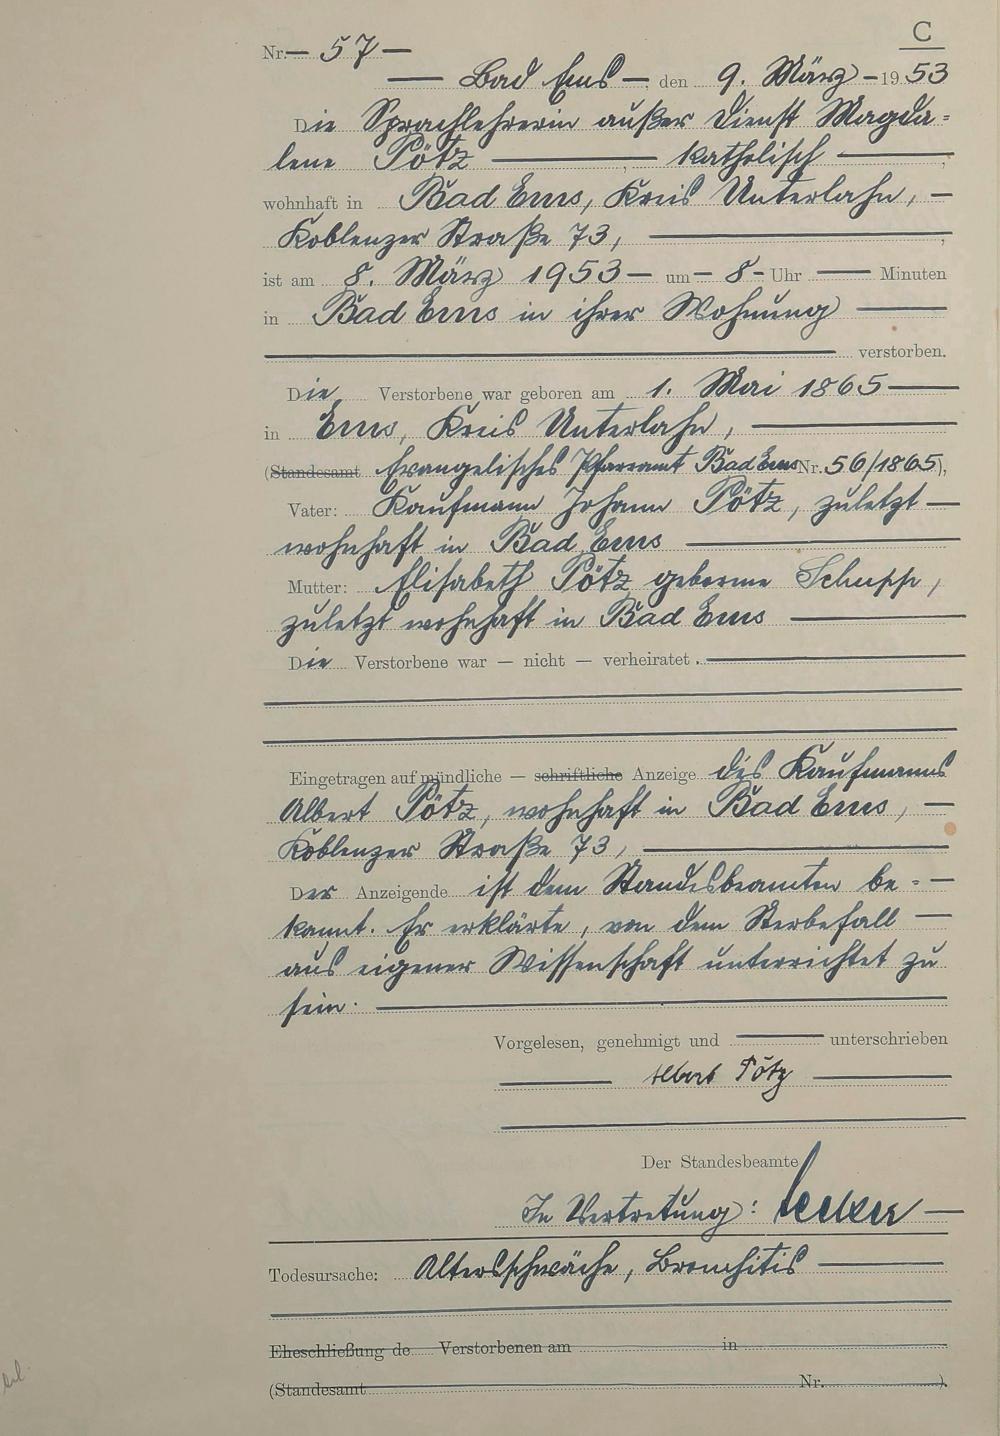 C
Nr. — 57 —
— Bad Ems — den 9. März — 1953
Die Sprachlehrerin außer Dienst Magda-
lene Pötz —, katholisch —,
wohnhaft in Bad Ems, Kreis Unterlahn, —
Koblenzer Straße 73, —,
ist am 8. März 1953 — um — 8 - Uhr — Minuten
in Bad Ems in ihrer Wohnung —
— verstorben.
Die Verstorbene war geboren am 1. Mai 1865 —
in Ems, Kreis Unterlahn, —
(Standesamt Evangelisches Pfarramt Bad Ems Nr. 56/1865),
Vater: Kaufmann Johann Pötz, zuletzt —
wohnhaft in Bad Ems —
Mutter: Elisabeth Pötz geborene Schupp,
zuletzt wohnhaft in Bad Ems —
Die Verstorbene war — nicht — verheiratet. —
Eingetragen auf mündliche — schriftliche Anzeige des Kaufmanns
Albert Pötz, wohnhaft in Bad Ems, —
Koblenzer Straße 73, —
Der Anzeigende ist dem Standesbeamten be- —
kannt. Er erklärte, von dem Sterbefall —
aus eigener Wissenschaft unterrichtet zu
sein. —
Vorgelesen, genehmigt und — unterschrieben
— Albert Pötz —
Der Standesbeamte
In Vertretung: —
Todesursache: Altersschwäche, Bronchitis —
Eheschließung de Verstorbenen am in
(Standesamt Nr. ).